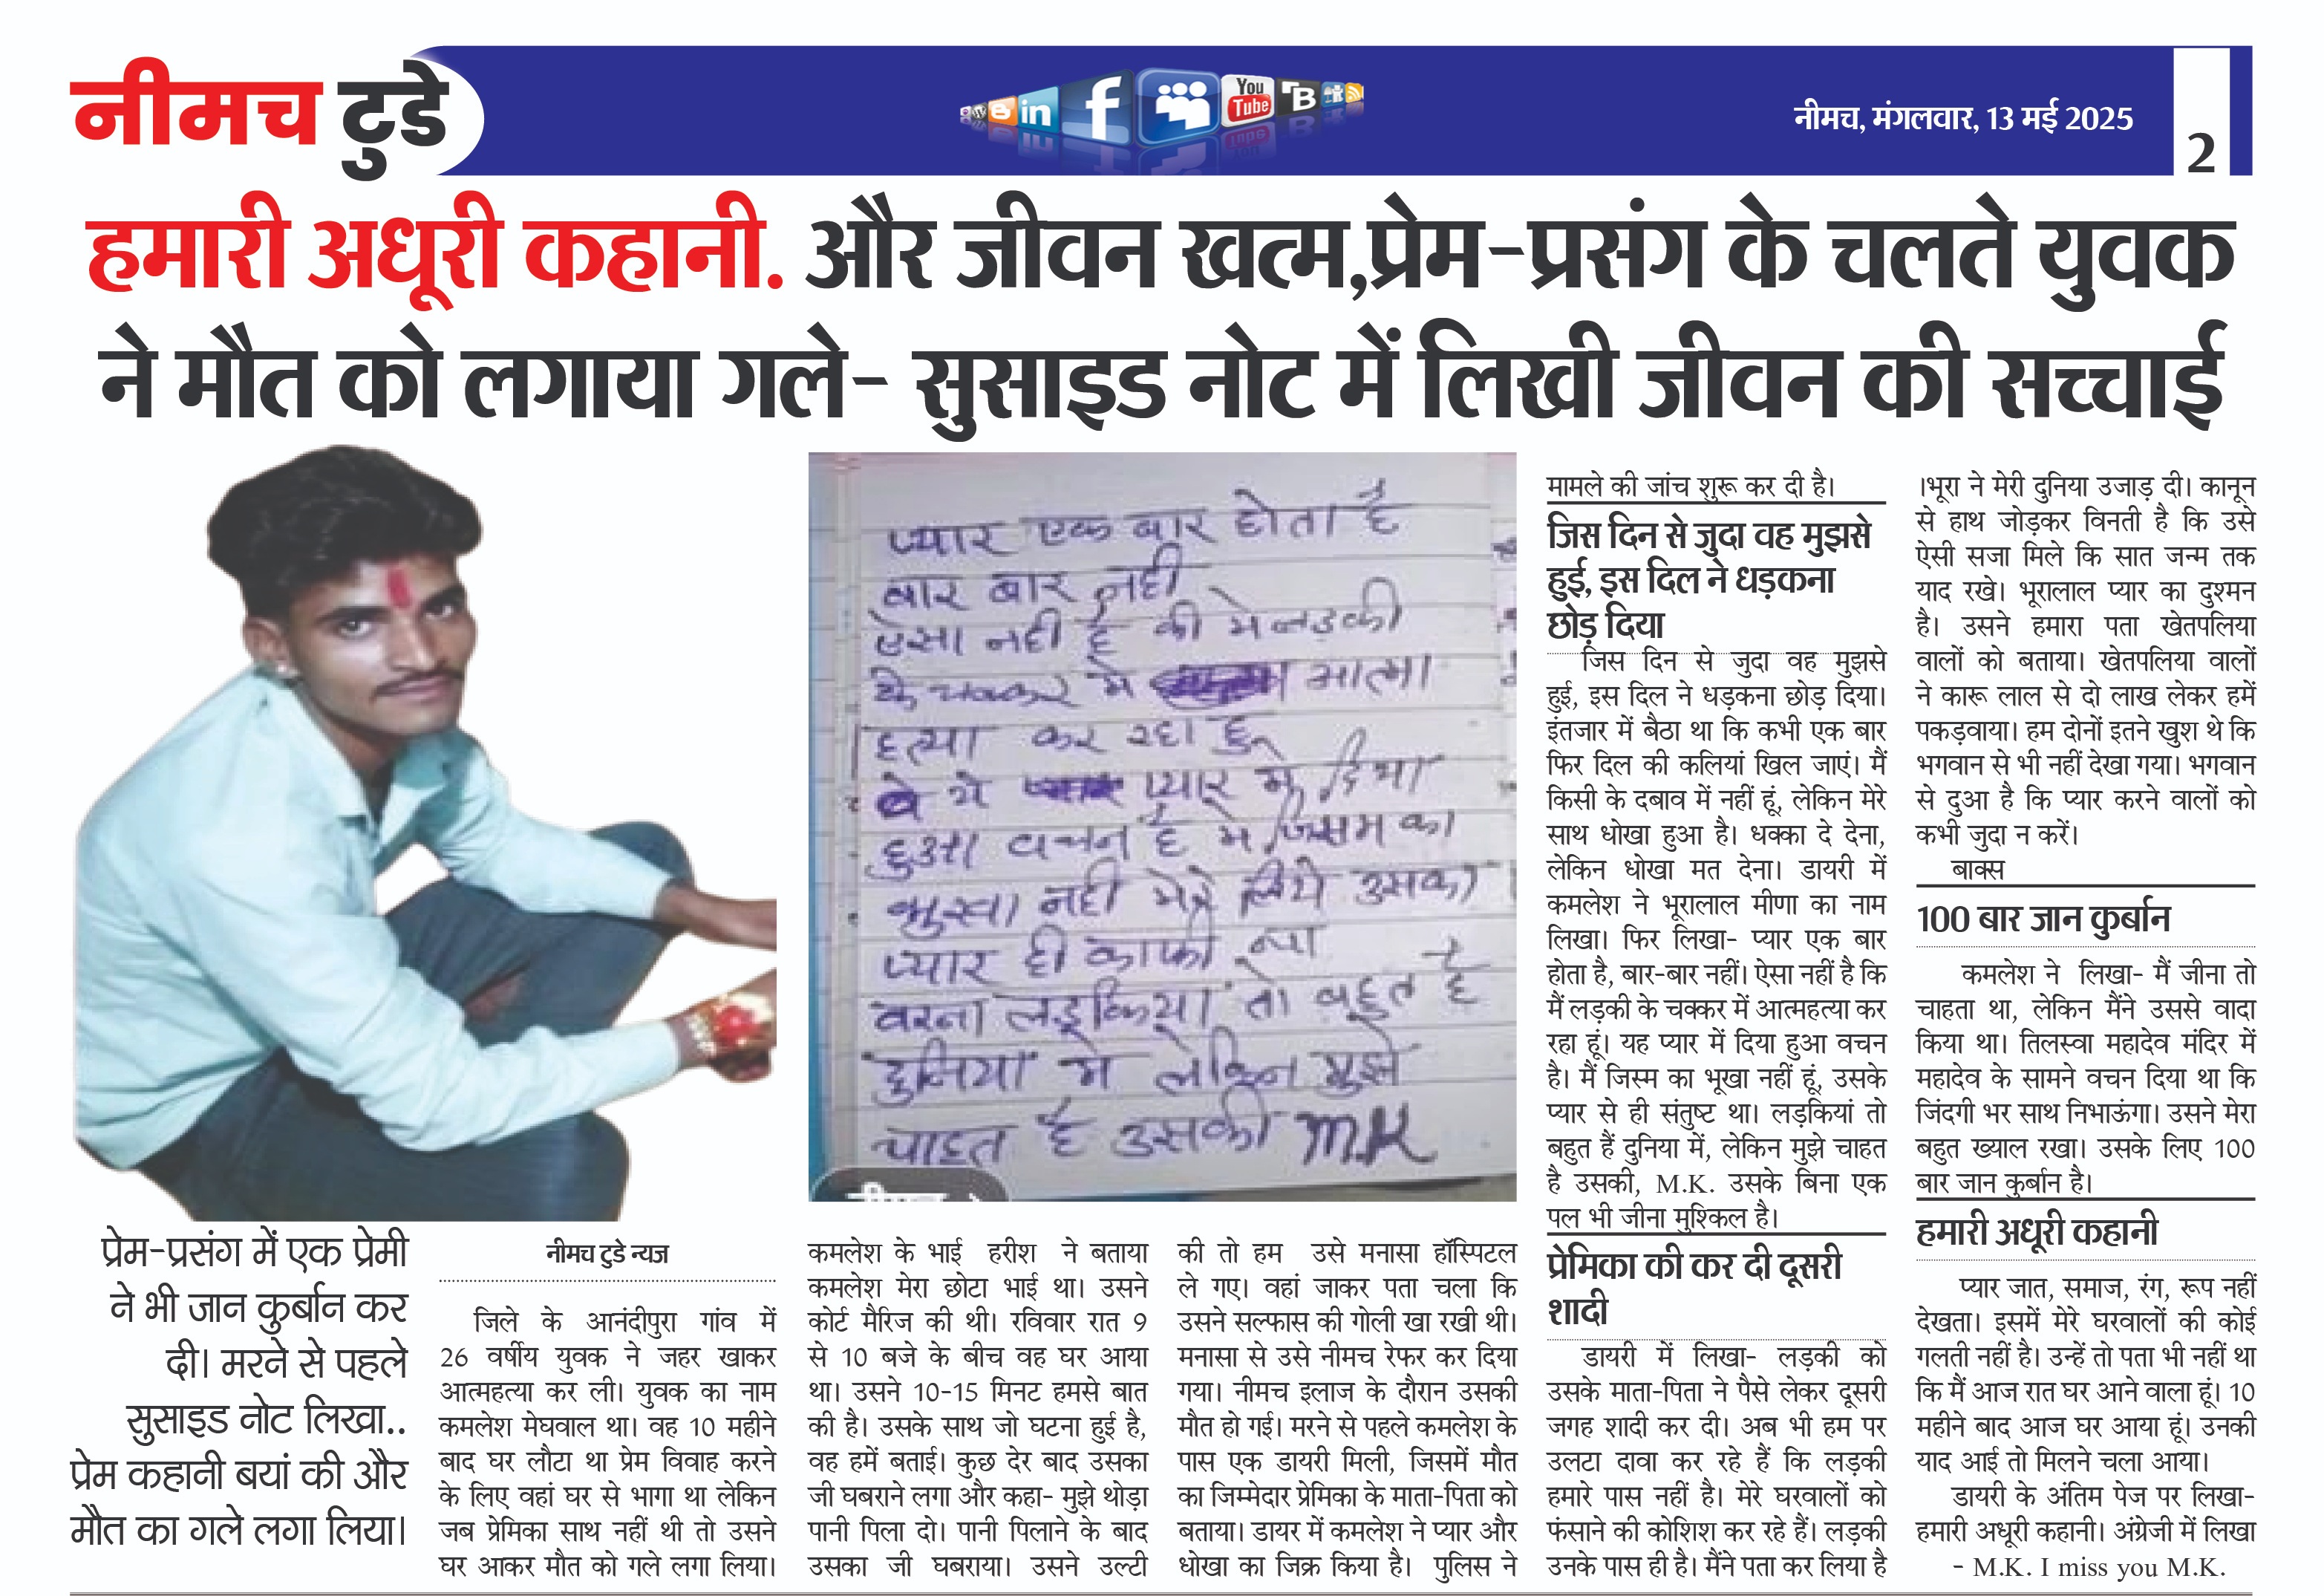 नीमच टुडे
You
Tube
in
f
B
नीमच, मंगलवार, 13 मई 2025
2
हमारी अधूरी कहानी. और जीवन खत्म,प्रेम-प्रसंग के चलते युवक
ने मौत को लगाया गले- सुसाइड नोट में लिखी जीवन की सच्चाई
प्यार एक बार होता है
बार बार नही
ऐसा नही है की मे लडकी
के चक्कर मे आत्मा
हत्या कर रहा हु
ये प्यार मे दिया
हुआ वचन है मे जिसम का
भुखा नही मेरे लिये उसका
प्यार ही काफी था
वरना लड़किया तो बहुत है
दुनिया मे लेकिन मुझे
चाहत है उसकी M.K
प्रेम-प्रसंग में एक प्रेमी
ने भी जान कुर्बान कर
दी। मरने से पहले
सुसाइड नोट लिखा..
प्रेम कहानी बयां की और
मौत का गले लगा लिया।
नीमच टुडे न्यज
जिले के आनंदीपुरा गांव में
26 वर्षीय युवक ने जहर खाकर
आत्महत्या कर ली। युवक का नाम
कमलेश मेघवाल था। वह 10 महीने
बाद घर लौटा था प्रेम विवाह करने
के लिए वहां घर से भागा था लेकिन
जब प्रेमिका साथ नहीं थी तो उसने
घर आकर मौत को गले लगा लिया।
कमलेश के भाई हरीश ने बताया
कमलेश मेरा छोटा भाई था। उसने
कोर्ट मैरिज की थी। रविवार रात 9
से 10 बजे के बीच वह घर आया
था। उसने 10-15 मिनट हमसे बात
की है। उसके साथ जो घटना हुई है,
वह हमें बताई। कुछ देर बाद उसका
जी घबराने लगा और कहा- मुझे थोड़ा
पानी पिला दो। पानी पिलाने के बाद
उसका जी घबराया। उसने उल्टी
की तो हम उसे मनासा हॉस्पिटल
ले गए। वहां जाकर पता चला कि
उसने सल्फास की गोली खा रखी थी।
मनासा से उसे नीमच रेफर कर दिया
गया। नीमच इलाज के दौरान उसकी
मौत हो गई। मरने से पहले कमलेश के
पास एक डायरी मिली, जिसमें मौत
का जिम्मेदार प्रेमिका के माता-पिता को
बताया। डायर में कमलेश ने प्यार और
धोखा का जिक्र किया है। पुलिस ने
मामले की जांच शुरू कर दी है।
जिस दिन से जुदा वह मुझसे
हुई, इस दिल ने धड़कना
छोड़ दिया
जिस दिन से जुदा वह मुझसे
हुई, इस दिल ने धड़कना छोड़ दिया।
इंतजार में बैठा था कि कभी एक बार
फिर दिल की कलियां खिल जाएं। मैं
किसी के दबाव में नहीं हूं, लेकिन मेरे
साथ धोखा हुआ है। धक्का दे देना,
लेकिन धोखा मत देना। डायरी में
कमलेश ने भूरालाल मीणा का नाम
लिखा। फिर लिखा- प्यार एक बार
होता है, बार-बार नहीं। ऐसा नहीं है कि
मैं लड़की के चक्कर में आत्महत्या कर
रहा हूं। यह प्यार में दिया हुआ वचन
है। मैं जिस्म का भूखा नहीं हूं, उसके
प्यार से ही संतुष्ट था। लड़कियां तो
बहुत हैं दुनिया में, लेकिन मुझे चाहत
है उसकी, M.K. उसके बिना एक
पल भी जीना मुश्किल है।
प्रेमिका की कर दी दूसरी
शादी
डायरी में लिखा- लड़की को
उसके माता-पिता ने पैसे लेकर दूसरी
जगह शादी कर दी। अब भी हम पर
उलटा दावा कर रहे हैं कि लड़की
हमारे पास नहीं है। मेरे घरवालों को
फंसाने की कोशिश कर रहे हैं। लड़की
उनके पास ही है। मैंने पता कर लिया है
।भूरा ने मेरी दुनिया उजाड़ दी। कानून
से हाथ जोड़कर विनती है कि उसे
ऐसी सजा मिले कि सात जन्म तक
याद रखे। भूरालाल प्यार का दुश्मन
है। उसने हमारा पता खेतपलिया
वालों को बताया। खेतपलिया वालों
ने कारू लाल से दो लाख लेकर हमें
पकड़वाया। हम दोनों इतने खुश थे कि
भगवान से भी नहीं देखा गया। भगवान
से दुआ है कि प्यार करने वालों को
कभी जुदा न करें।
बाक्स
100 बार जान कुर्बान
कमलेश ने लिखा- मैं जीना तो
चाहता था, लेकिन मैंने उससे वादा
किया था। तिलस्वा महादेव मंदिर में
महादेव के सामने वचन दिया था कि
जिंदगी भर साथ निभाऊंगा। उसने मेरा
बहुत ख्याल रखा। उसके लिए 100
बार जान कुर्बान है।
हमारी अधूरी कहानी
प्यार जात, समाज, रंग, रूप नहीं
देखता। इसमें मेरे घरवालों की कोई
गलती नहीं है। उन्हें तो पता भी नहीं था
कि मैं आज रात घर आने वाला हूं। 10
महीने बाद आज घर आया हूं। उनकी
याद आई तो मिलने चला आया।
डायरी के अंतिम पेज पर लिखा-
हमारी अधूरी कहानी। अंग्रेजी में लिखा
- M.K. I miss you M.K.